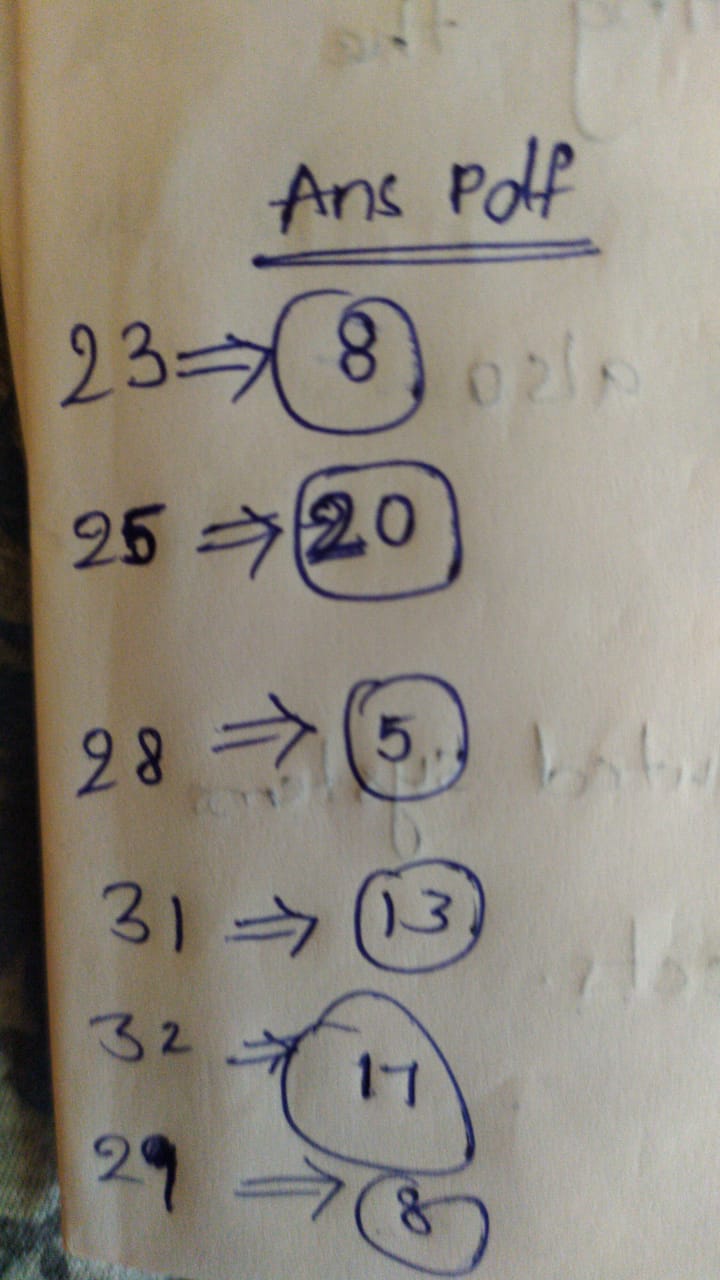 Ans Pdf
23 ⇒ 8
25 ⇒ 20
28 ⇒ 5
31 ⇒ 13
32 ⇒ 17
29 ⇒ 8